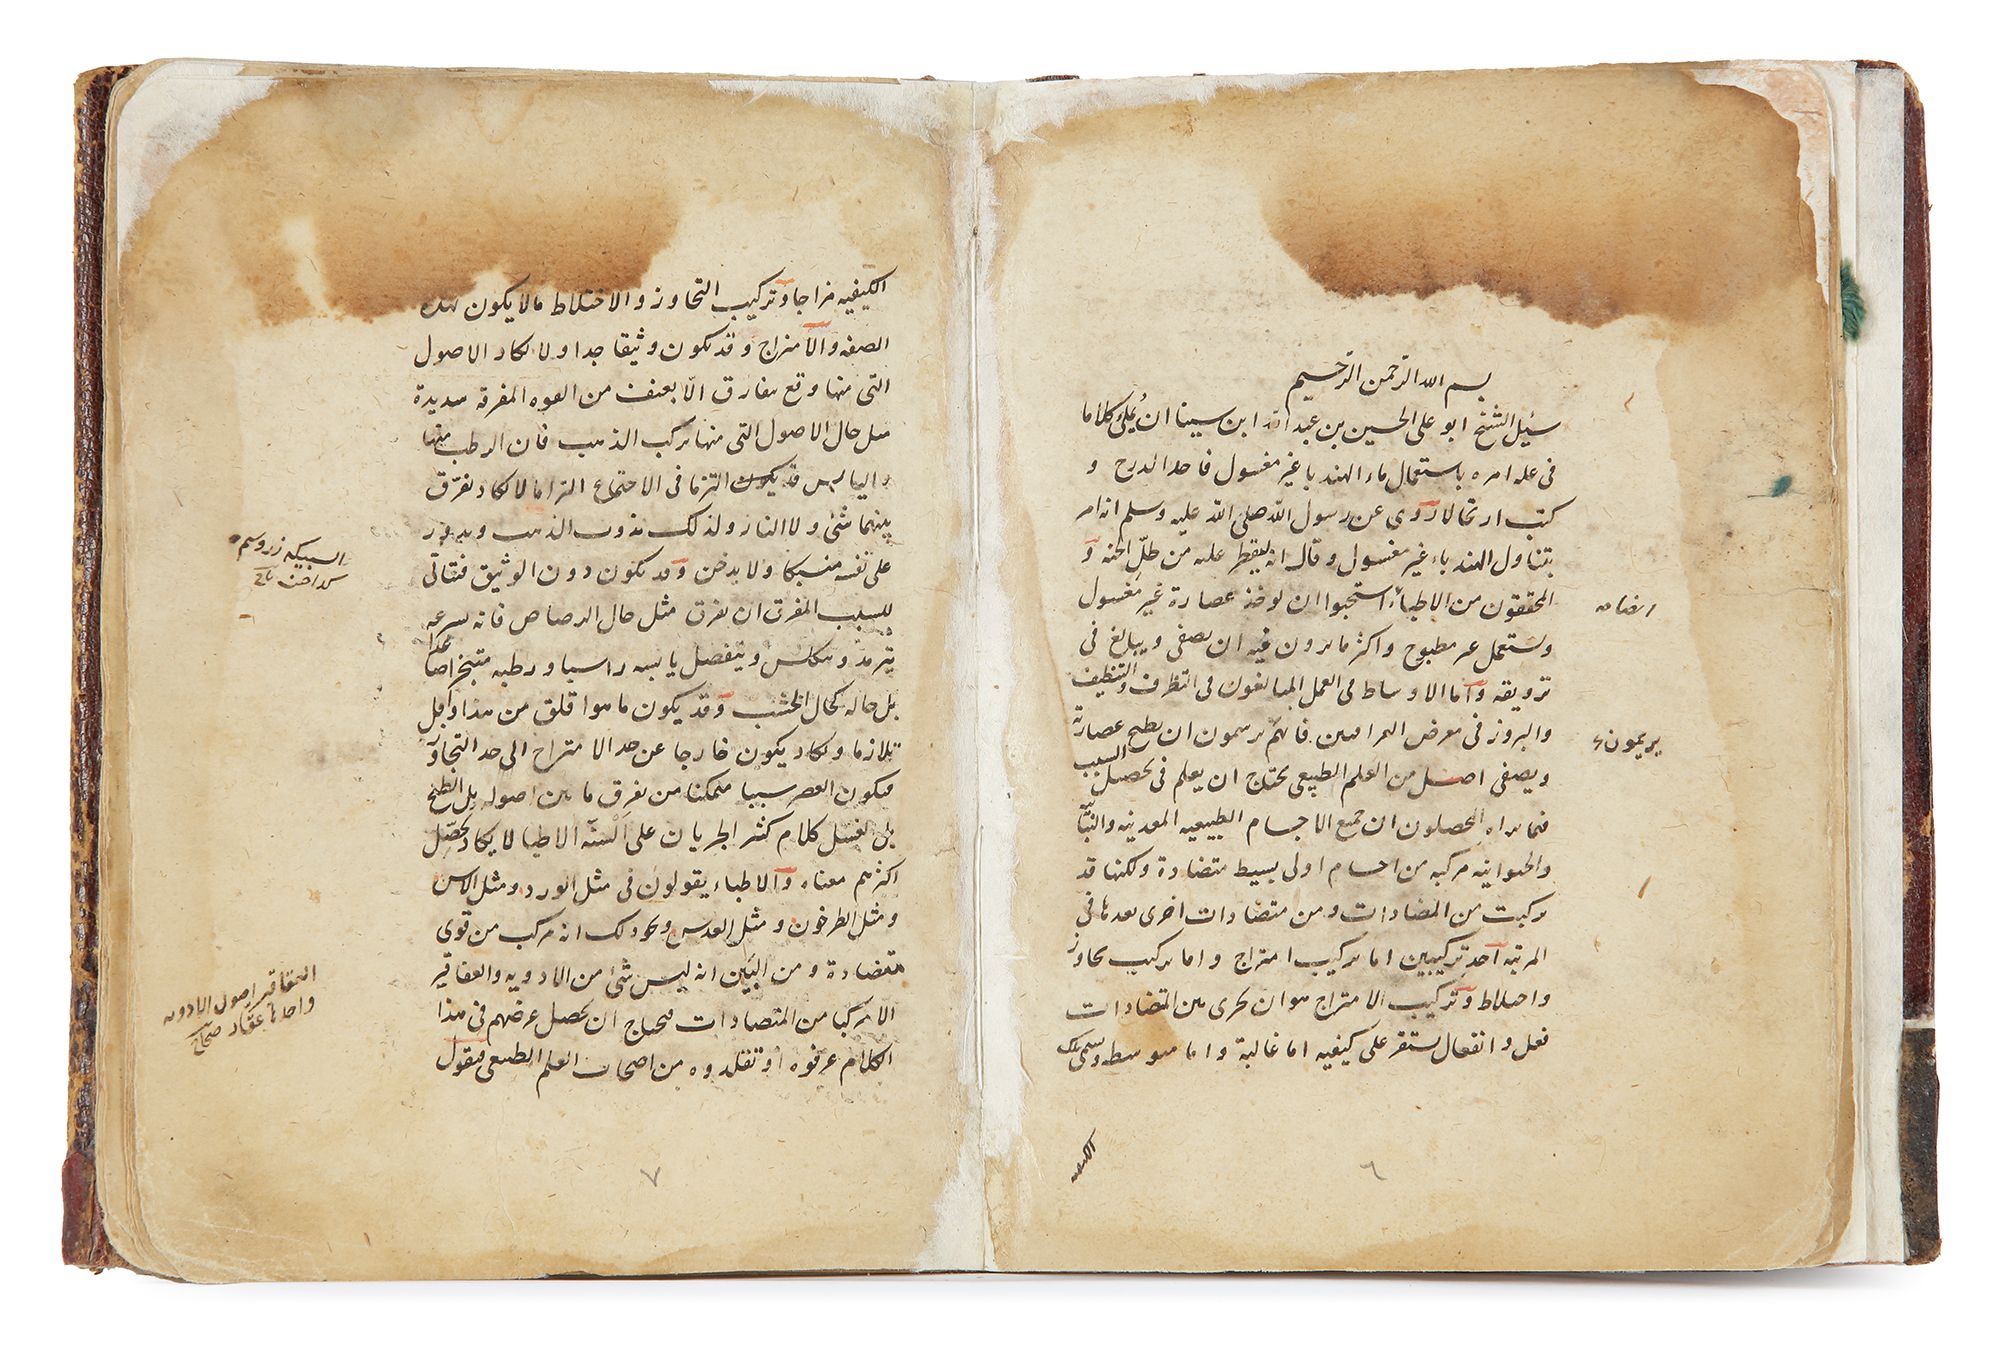 بسم الله الرحمن الرحيم
سئيل الشيخ ابو على الحسين بن عبد الله ابن سينا ان يملى كلاما
فى عله امره باستعمال ماء الهندبا غير مغسول فاحد الدرج و
كتب ارتجالا روى عن رسول الله صلى الله عليه وسلم انه امر
بتناول الهندباء غير مغسول وقال انه يقطر عليه من طل الجنه و
المحققون من الاطباء استحبوا ان يوخذ عصارة غير مغسول
ويستعمل غير مطبوخ واكثر ما يرون فيه ان يصفى ويبالغ فى
ترويقه واما الاوساط فى العمل المبالغون فى التظرف والتنظيف
والبروز فى معرض فانهم يرسمون ان يطبخ عصارته
ويصفى اصل من العلم الطبيعى يحتاج ان يعلم فى تحصيل السبب
فيما يراه المحصلون ان جميع الاجسام الطبيعيه المعدنيه والنبا
والحيوانيه مركبه من اجسام اولى بسيط متضادة ولكنها قد
تركبت من المضادات ومن متضادات اخرى بعدها فى
المرتبه احد تركيبين اما تركيب امتزاج واما تركيب تجاوز
واختلاط وتركيب الامتزاج هو ان يجرى بين المتضادات
فعل وانفعال يستقر على كيفيه اما غالبة واما متوسطه ويسمى تلك
الكيفيه
ايضا
يريمون
٦
الكيفيه مزاجا وتركيب التجاوز والاختلاط ما لا يكون بهذه
الصفه والامتزاج وقد يكون وثيقا جدا ولا يكاد الاصول
التى منها وقع يفارق الا بعنف من القوه المفرقة شديدة
مثل حال الاصول التى منها يركب الذهب فان الرطب منها
واليابس قد يكون التزما فى الاجتماع التزاما لا يكاد يفرق
بينهما شئ ولا النار ولذلك يذوب الذهب ويدور
على نفسه منسبكا ولا يدخن وقد يكون دون الوثيق فيتاتى
للسبب المفرق ان يفرق مثل حال الرصاص فانه بسرعه
يترمد ويتكلس وينفصل يابسه راسبا ورطبه متبخرا صاعدا
بل حاله كحال الخشب وقد يكون ما هو اقلق من هذا واقل
تلازما ويكاد يكون خارجا عن حد الامتزاج الى حد التجاور
فيكون العصر سببا متمكنا من تفرق ما بين اصوله بل الطبخ
بل الغسل كلام كثير الجريان على السنه الاطبا لا يكاد يحصل
اكثرهم معناه والاطباء يقولون فى مثل الورد ومثل الاس
ومثل الطرخون ومثل العدس ونحو ذلك انه مركب من قوى
متضادة ومن البين انه ليس شئ من الادويه والعقاقير
الا مركبا من المتضادات فيحتاج ان يحصل غرضهم فى هذا
الكلام عرفوه او تقلدوه من اصحاب العلم الطبيعى فيقول
السبيكه زر وسيم
كداخت تاج
العقاقير اصول الادويه
واحدها عقار صحاح
٧